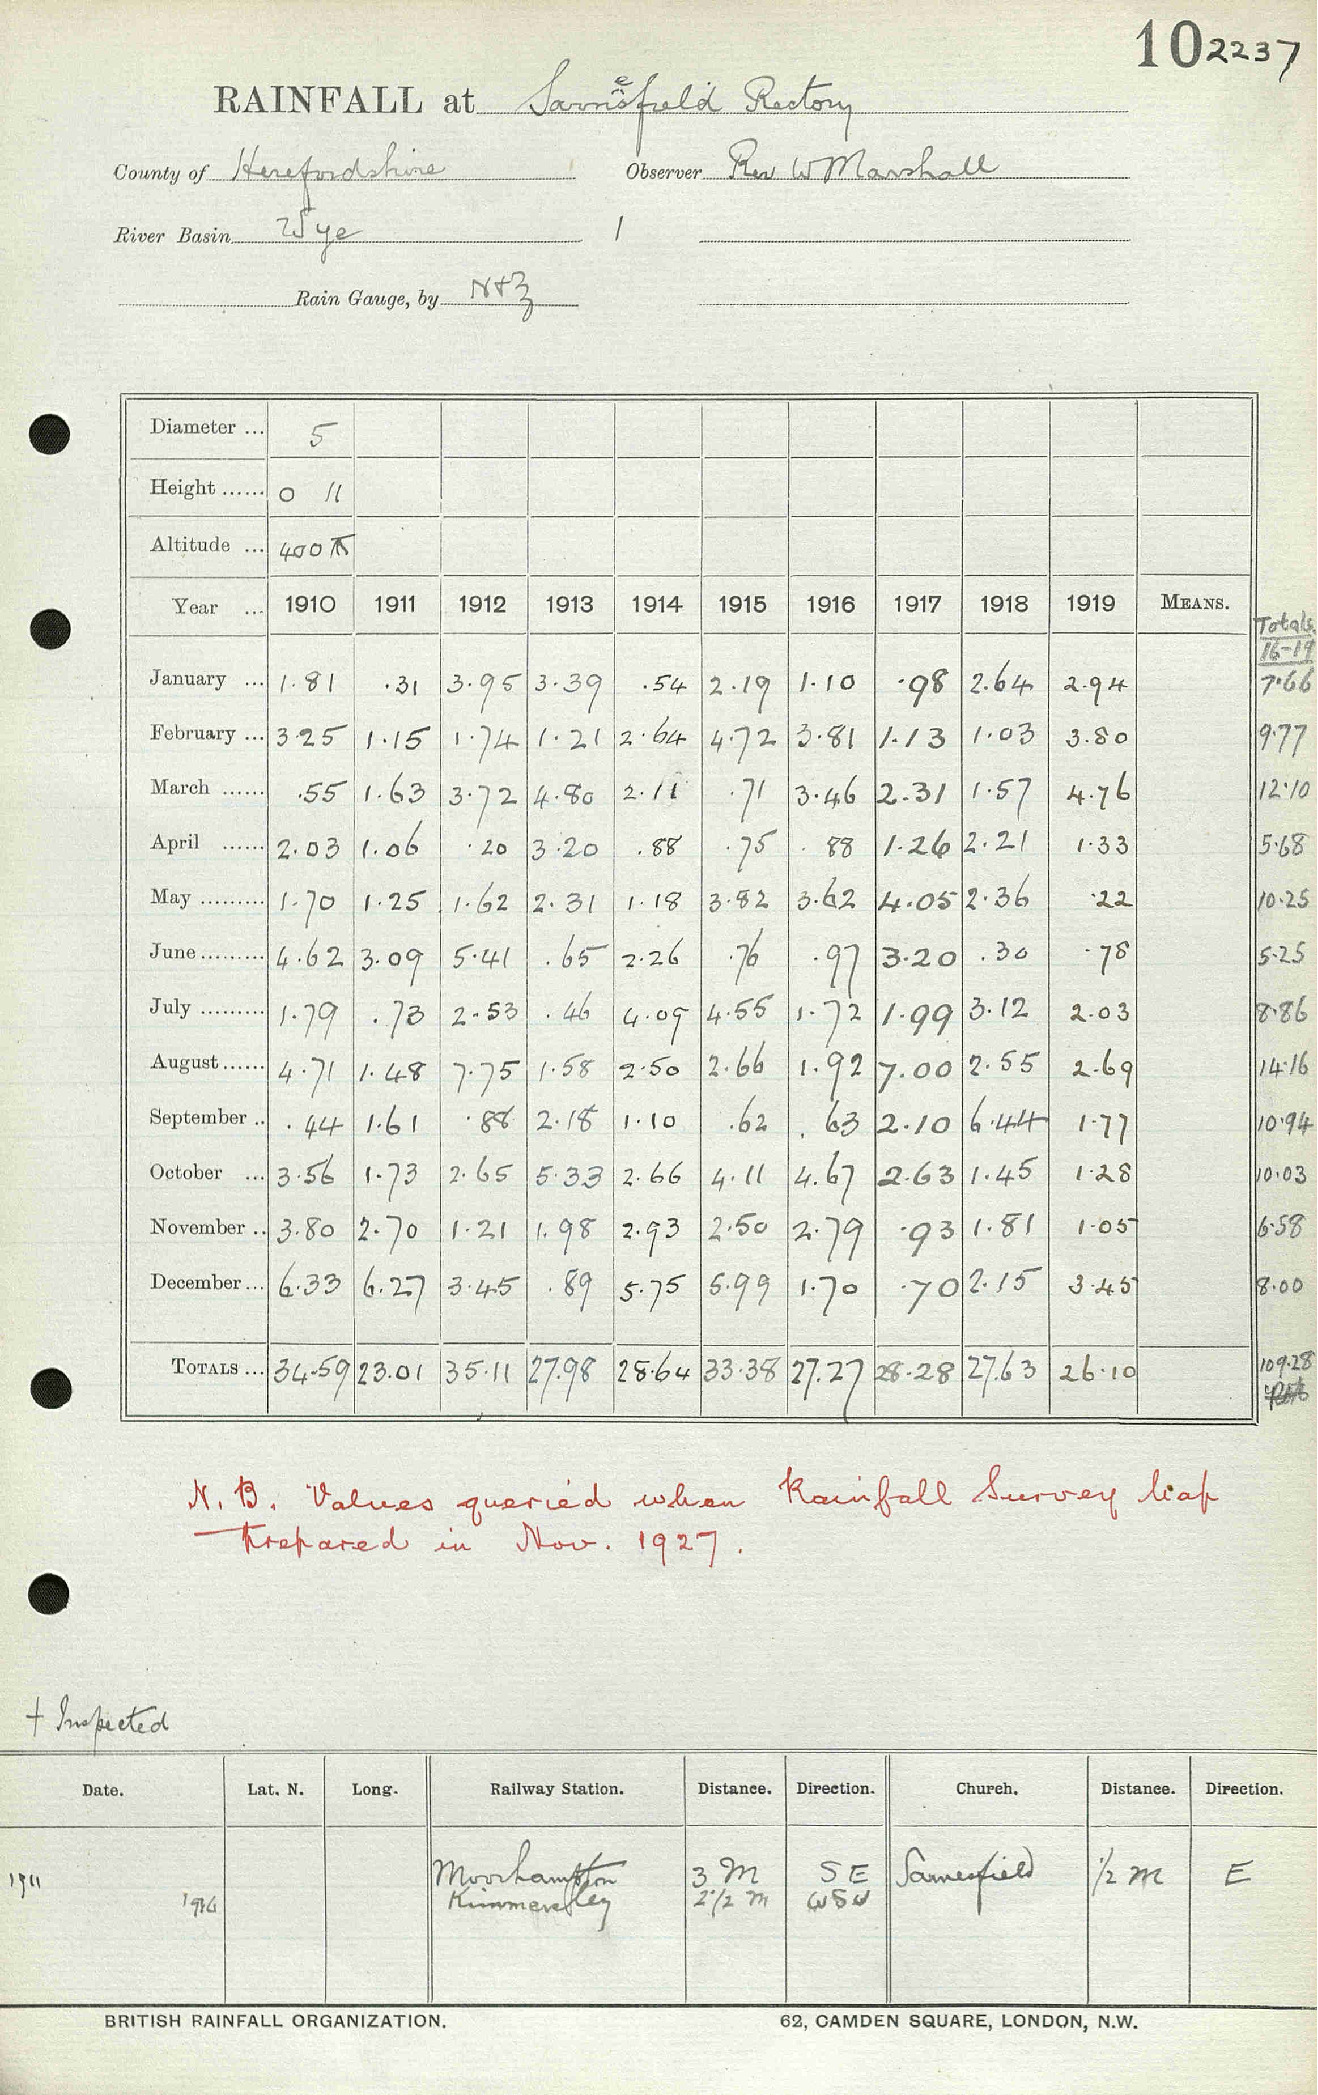 10 2237
RAINFALL at Sarnesfield Rectory
County of Herefordshire Observer Rev W Marshall
River Basin Wye 1
Rain Gauge, by N+Z
Diameter ... 5
Height ...... 0 11
Altitude ... 400
Year ... 1910 1911 1912 1913 1914 1915 1916 1917 1918 1919 MEANS. Totals
16-19
January ... 1.81 .31 3.95 3.39 .54 2.19 1.10 .98 2.64 2.94 7.66
February ... 3.25 1.15 1.74 1.21 2.64 4.72 3.81 1.13 1.03 3.80 9.77
March ...... .55 1.63 3.72 4.80 2.11 .71 3.46 2.31 1.57 4.76 12.10
April ...... 2.03 1.06 .20 3.20 .88 .75 .88 1.26 2.21 1.33 5.68
May ......... 1.70 1.25 1.62 2.31 1.18 3.82 3.62 4.05 2.36 .22 10.25
June ......... 4.62 3.09 5.41 .65 2.26 .76 .97 3.20 .30 .78 5.25
July ......... 1.79 .73 2.53 .46 4.09 4.55 1.72 1.99 3.12 2.03 8.86
August ...... 4.71 1.48 7.75 1.58 2.50 2.66 1.92 7.00 2.55 2.69 14.16
September .. .44 1.61 .88 2.18 1.10 .62 .63 2.10 6.44 1.77 10.94
October ... 3.56 1.73 2.65 5.33 2.66 4.11 4.67 2.63 1.45 1.28 10.03
November .. 3.80 2.70 1.21 1.98 2.93 2.50 2.79 .93 1.81 1.05 6.58
December ... 6.33 6.27 3.45 .89 5.75 5.99 1.70 .70 2.15 3.45 8.00
TOTALS ... 34.59 23.01 35.11 27.98 28.64 33.38 27.27 28.28 27.63 26.10 109.28
N.B. Values queried when Rainfall Survey Map
prepared in Nov. 1927.
† Inspected
Date. Lat. N. Long. Railway Station. Distance. Direction. Church. Distance. Direction.
1911 Moorhampton 3 M SE Sarnesfield 1/2 M E
Kinnersley 2 1/2 M WSW
BRITISH RAINFALL ORGANIZATION. 62, CAMDEN SQUARE, LONDON, N.W.